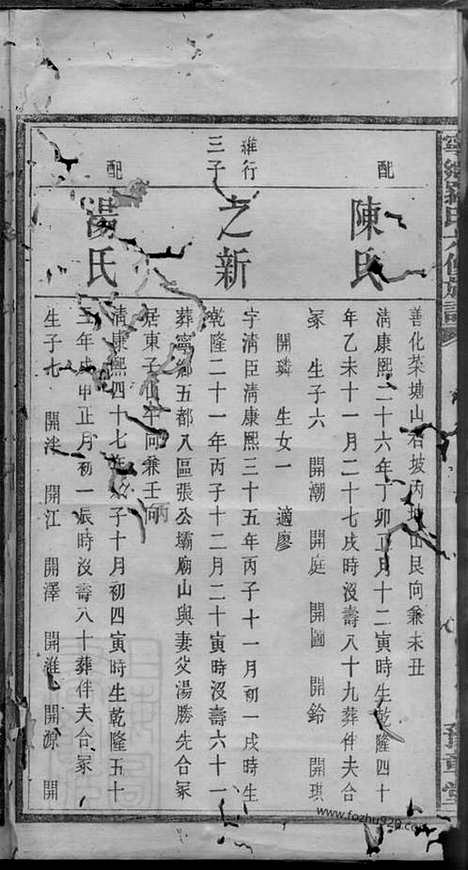 善化茶塘山石坡丙山艮向兼未丑
配 陳氏
清康熙二十六年丁卯正月十二寅時生乾隆四十
年乙未十一月二十七戌時沒壽八十九葬伴夫合
冢 生子六 開潮 開庭 開國 開鈴 開琪
開璘 生女一 適廖
維行三子 之新
字清臣清康熙三十五年丙子十一月初一戌時生
乾隆二十一年丙子十二月二十寅時沒壽六十一
葬寧鄉五都八區張公壩廟山與妻父湯勝先合冢
居東子山午向兼壬丙
配 湯氏
清康熙四十七年戊子十月初四寅時生乾隆五十
三年戊申正月初一辰時沒壽八十葬伴夫合冢
生子七 開泮 開江 開澤 開淮 開源 開
寧鄉 氏六修族譜
www.fozhu920.com